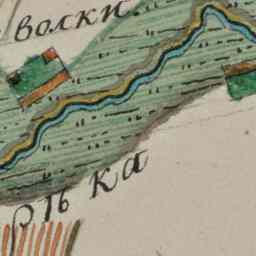 волки
рѣка